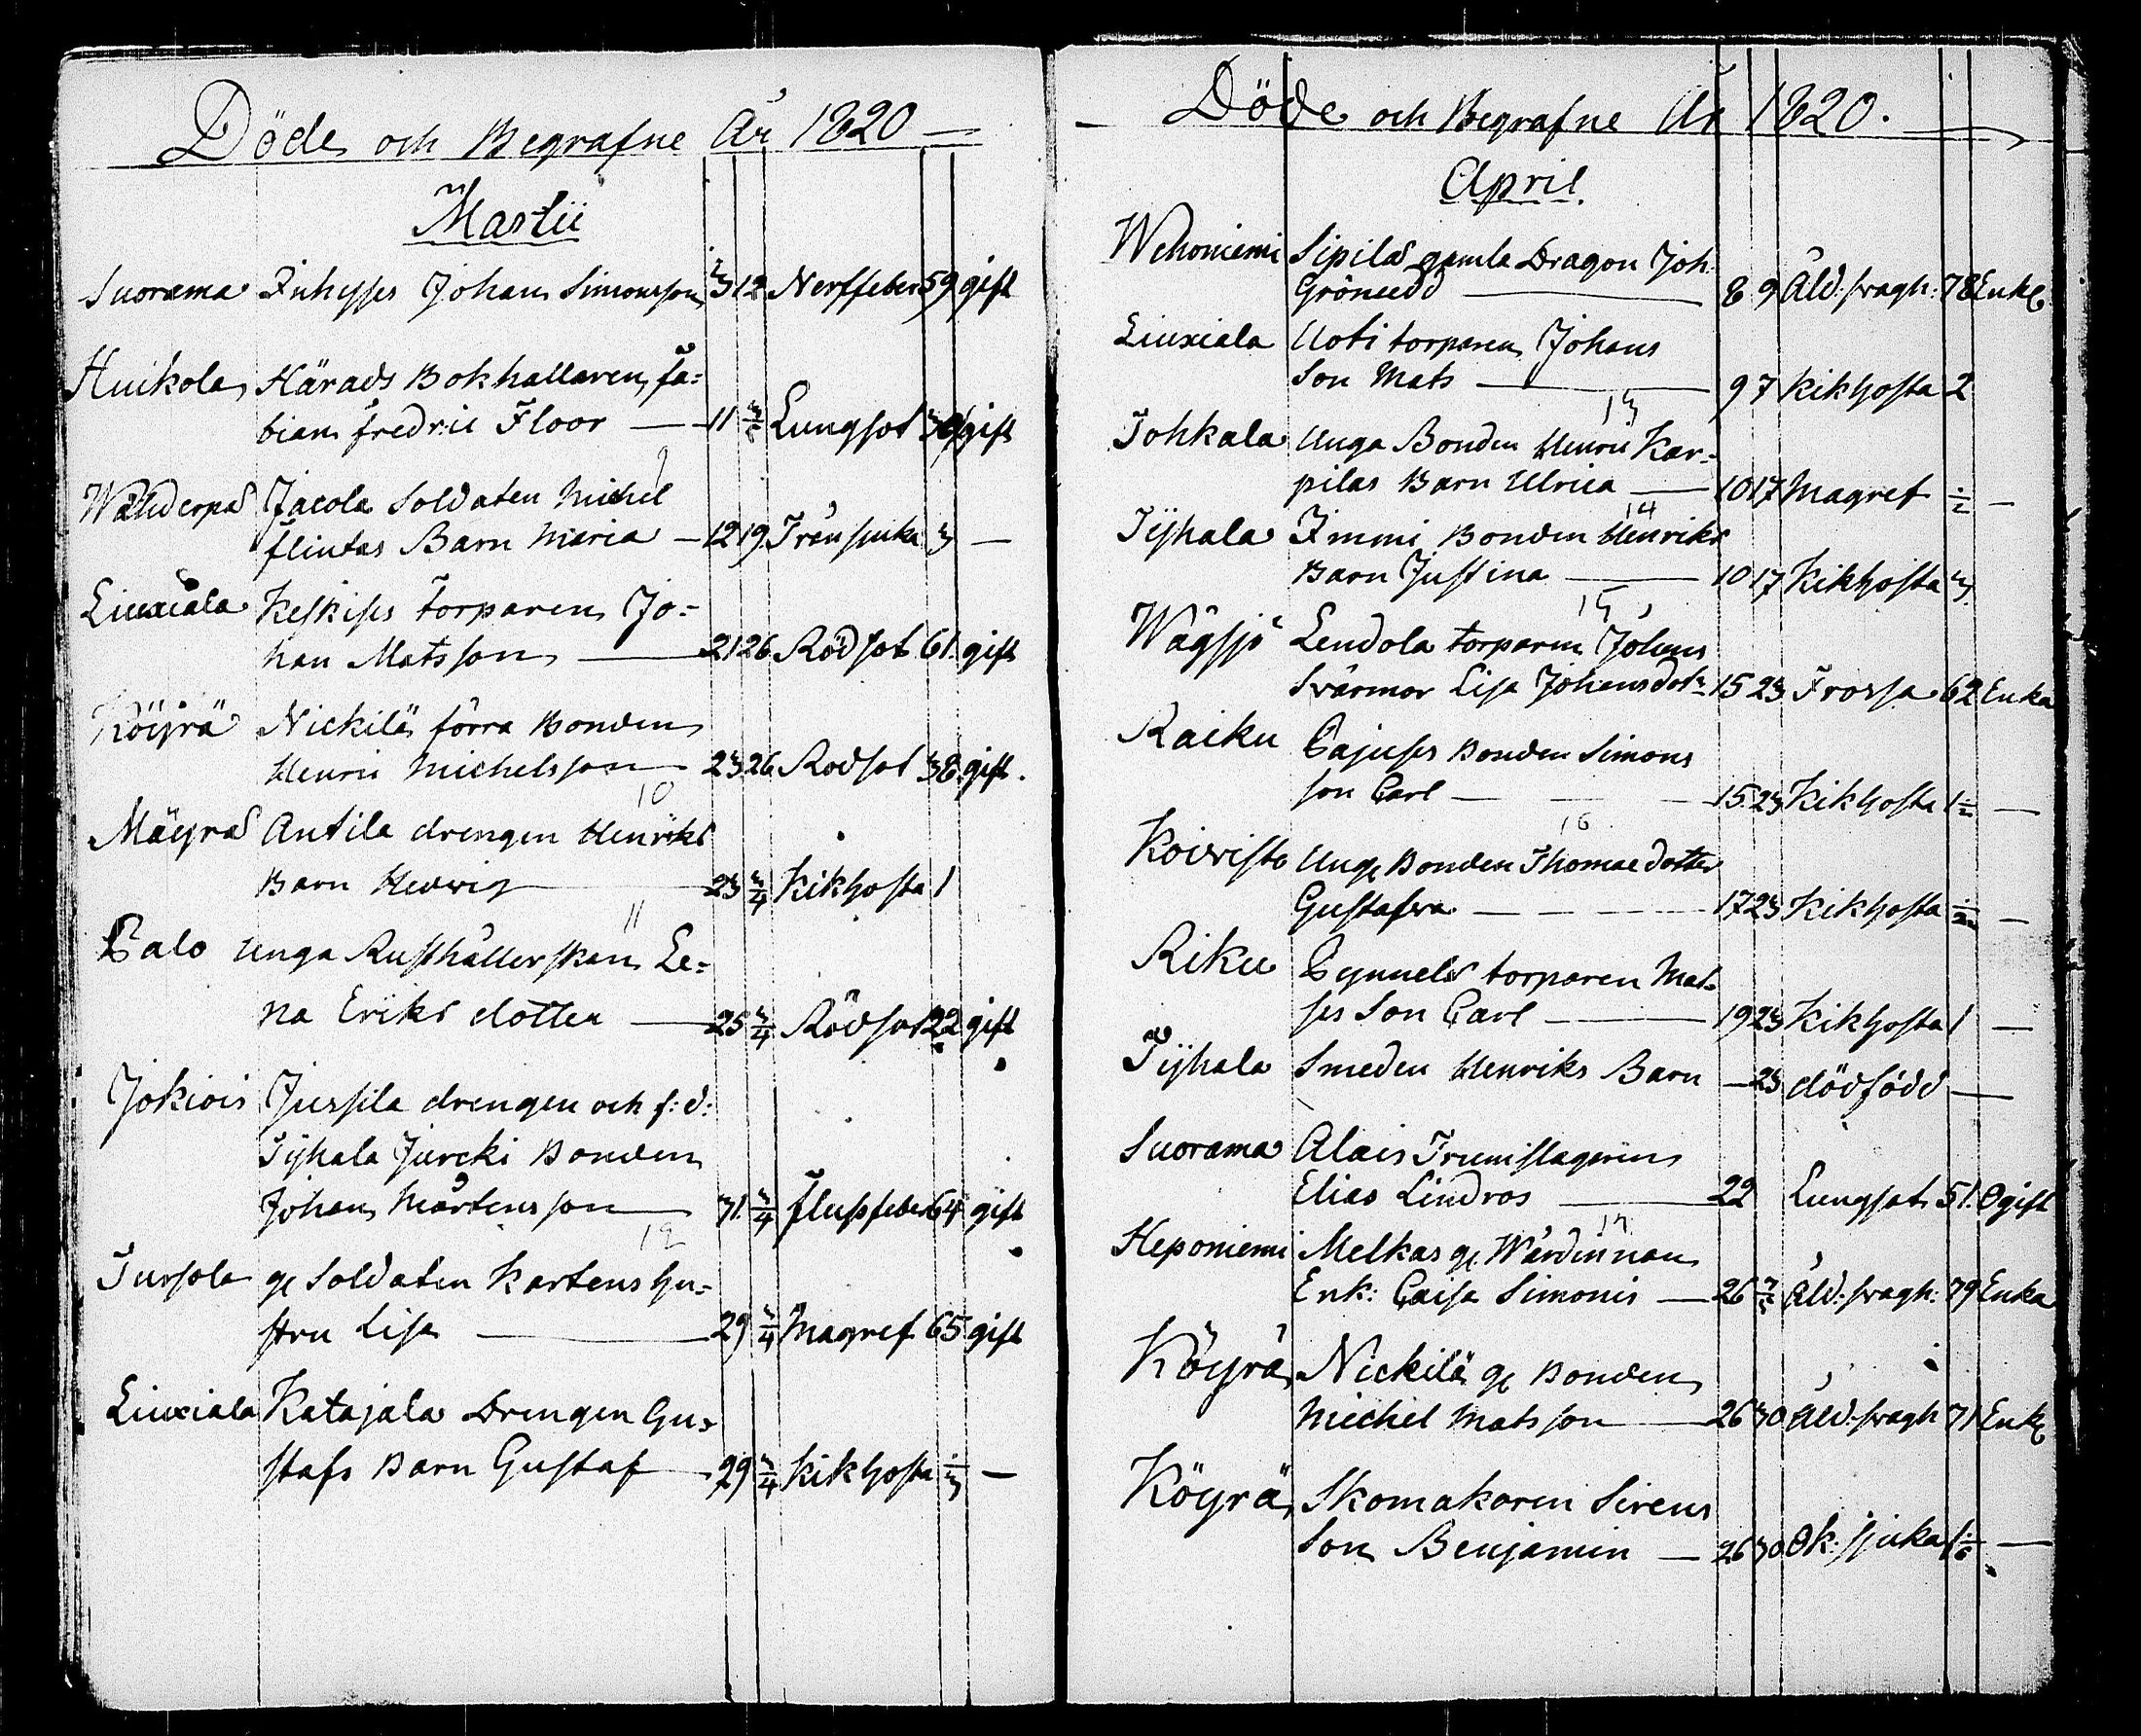 Döde och Begrafne År 1820
Martii
Suorama Inhyses Johan Simonsson 3 12 Nerffeber 59 gift
Huikola Härads Bokhållaren Fa=
bian Fredric Floor 11 Lungsot gift
9
Jacola Soldaten Michel
Flintas Barn Maria 12 19 Trånsjuka 3 —
Liuxiala Keskises Torparen Jo=
han Matsson 21 26 Rödsot 61 gift
Köyrä Nickilä förra Bonden
Henric Michelsson 23 26 Rödsot 38 gift.
10
Antila drengen Henriks
Barn Hedwig 23 3/4 Kikhosta 1
11
Palo Unga Rusthållerskan Le=
na Eriks dotter 25 3/4 Rödsot 22 gift
Jokiois Jussila drengen och f: d:
Tÿhala Jurcki Bonden
Johan Mårtensson 31 3/4 Flussfeber 64 gift
12
Tursola gl Soldaten Kartens Hu=
stru Lisa 29 3/4 Magref 65 gift
Liuxiala Katajala Drengen Gu=
stafs Barn Gustaf 29 3/4 Kikhosta 1/3 —
Döde och Begrafne År 1820.
April.
Wehoniemi Sipilä gamla Dragon Joh:
8 9 Åld: swagh: 78 Enkl
Liuxiala Uoti torparen Johans
Son Mats 9 7 Kikhosta 2
13
Tohkala Unga Bonden Henric Kar=
pilas Barn Ulrica 10 17 Magref 1/2 —
14
Tÿhala Immi Bonden Henriks
Barn Justina 10 17 Kikhosta 3.
15
Wågsjö Lendola torparen Johans
Swärmor Lisa Johansdotr 15 23 Frossa 62 Enka
Raiku Pajuses Bonden Simons
son Carl 15 23 Kikhosta 1 1/2 —
16
Koivisto Unge Bonden Thomae dotter
Gustafwa 17 23 Kikhosta 1/2 —
Riku torparen Mat=
ses Son Carl 19 23 Kikhosta 1 —
Tÿhala Smeden Henriks Barn — 23 dödfödd —
Suorama Alais Trumslagaren
Elias Lindros 22 Lungsot 51. Ogift
17
Heponiemi Melkas gl Wärdinnan
Enk: Caisa Simonis 26 Åld: swagh: 79 Enka
Köyrä Nickilä gl Bonden
Michel Matsson 26 30 Åld: swagh 71 Enkl
Köyrä Skomakaren Sirens
Son Benjamin 26 30 Ok: sjuka 1 1/6 —